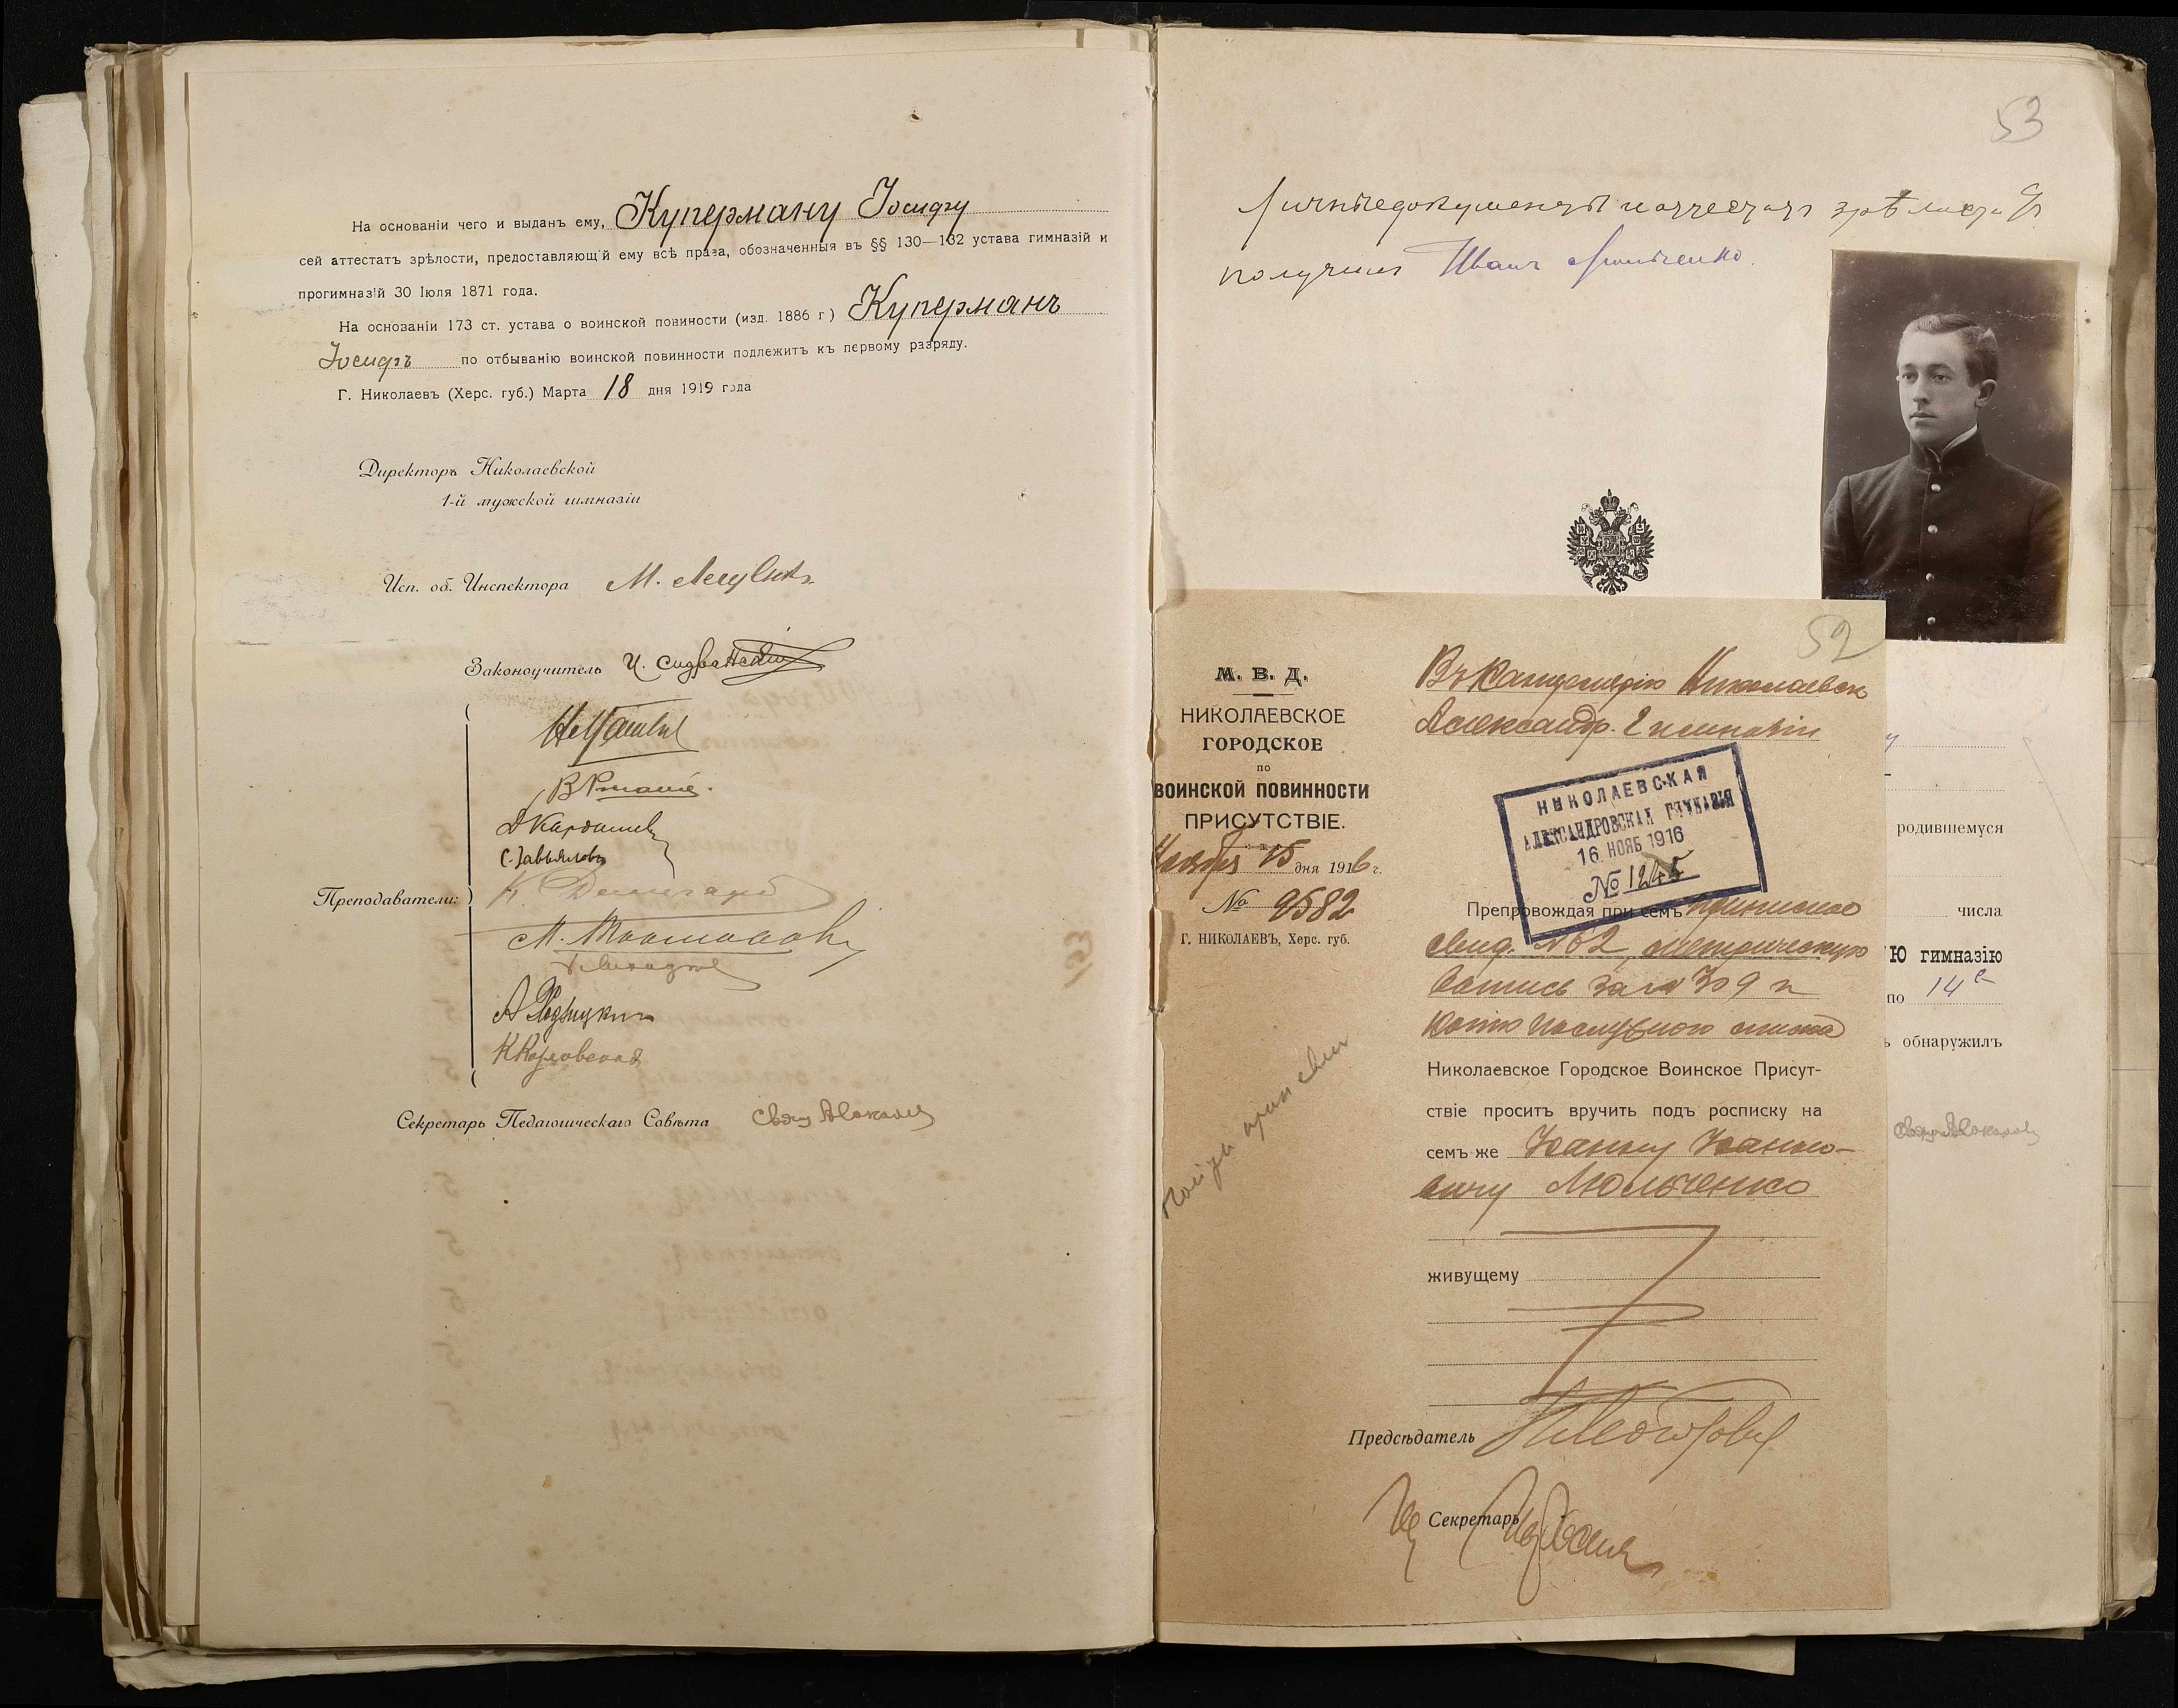 На основаніи чего и выданъ ему, Куперману Іосифу
сей аттестатъ зрѣлости, предоставляющій ему всѣ права, обозначенныя въ §§ 130—132 устава гимназій и
прогимназій 30 Іюля 1871 года.
На основаніи 173 ст. устава о воинской повиности (изд. 1886 г) Куперманъ
Іосифъ по отбыванію воинской повинности подлежитъ къ первому разряду.
Г. Николаевъ (Херс. губ.) Марта 18 дня 1919 года
Директоръ Николаевской
1-й мужской гимназіи
Исп. об. Инспектора М.
Законоучитель
Преподаватели:
С. Завьяловъ
Секретарь Педагогическаго Совѣта
53
Личные документы и аттестатъ зрѣлости
получилъ Иванъ
52
М. В. Д.
НИКОЛАЕВСКОЕ
ГОРОДСКОЕ
ПО
ВОИНСКОЙ ПОВИННОСТИ
ПРИСУТСТВІЕ.
Ноября 15 дня 1916 г.
№ 9582
Г. НИКОЛАЕВЪ, Херс. губ.
Въ Канцелярію Николаевск
Александр. Гимназіи
НИКОЛАЕВСКАЯ
АЛЕКСАНДРОВСКАЯ ГИМНАЗІЯ
16 НОЯБ 1916
№ 1245
Препровождая при семъ приписное
свид. № 62, метрическую
запись за № 309 и
копію послужного списка
Николаевское Городское Воинское Присут-
ствіе проситъ вручить подъ росписку на
семъ же Ивану Ивано-
вичу
живущему
Предсѣдатель
Секретарь
родившемуся
числа
Ю гимназію
по 14
ь обнаружилъ